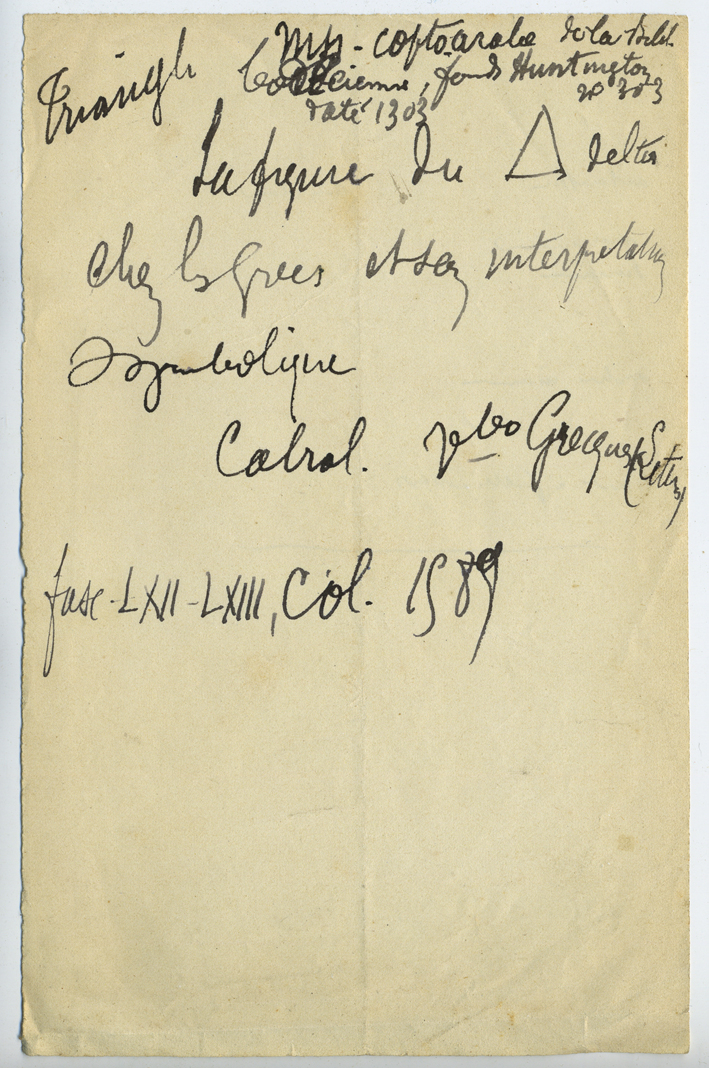 Triangle
Mss - copto-arabe de la Bibl.
Bodleienne, fonds Huntington
daté 1303
nº 303
La figure du Δ delta
chez les Grecs et son interpretation
symbolique
Cabrol. vbo Grecques (Lettres)
fasc. LXII-LXIII, Col. 1589